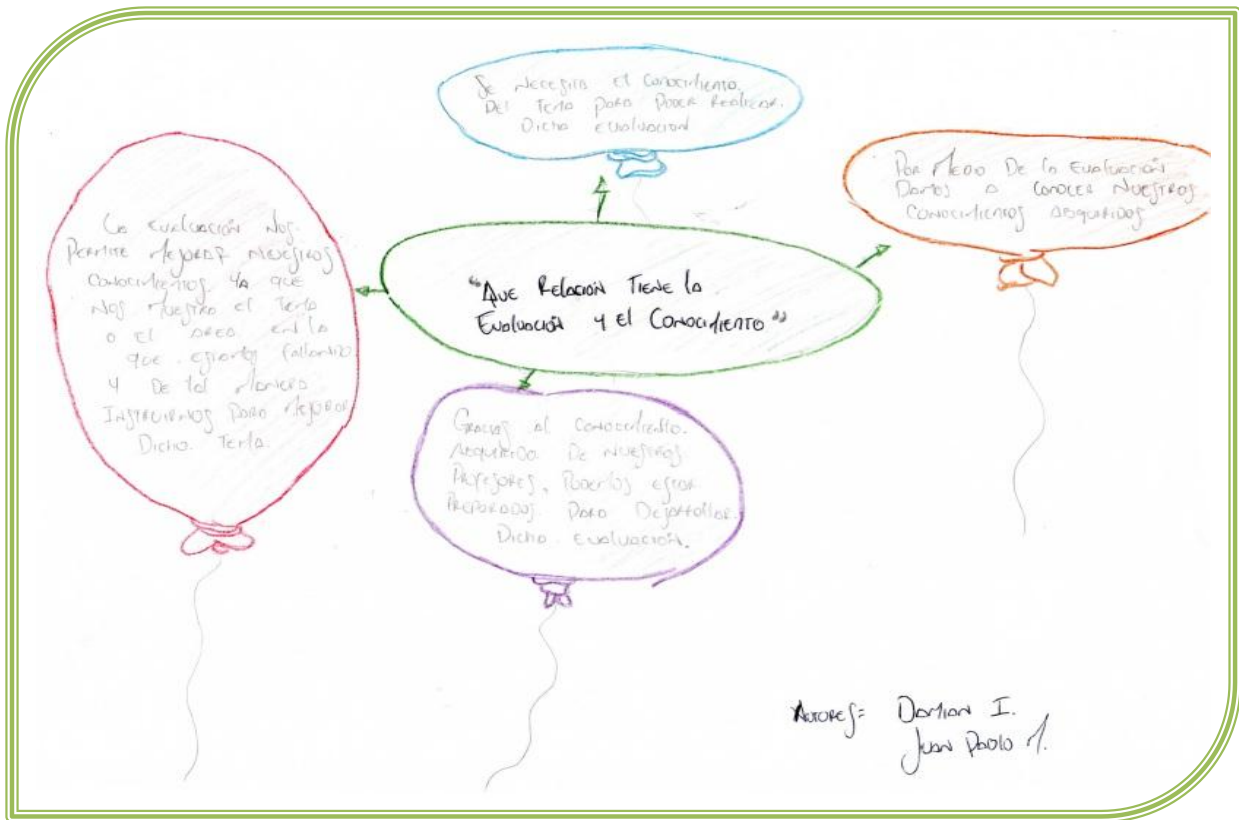 Se necesita el conocimiento.
Del tema para poder realizar.
Dicha evaluacion
Por medio de la evaluación
Damos a conocer nuestros
conocimientos adquiridos
La evaluación nos
permite mejorar nuestros
conocimientos, ya que
nos muestra el tema
o el area en la
que estamos fallando
y de tal manera
instruirnos para mejorar
Dicho tema.
"Que Relación Tiene la
Evaluación y el Conocimiento"
Gracias al conocimiento.
adquirido de nuestros
profesores, podemos estar
preparados para desarrollar
Dicha evaluación.
Autores= Damian I.
Juan Paolo M.